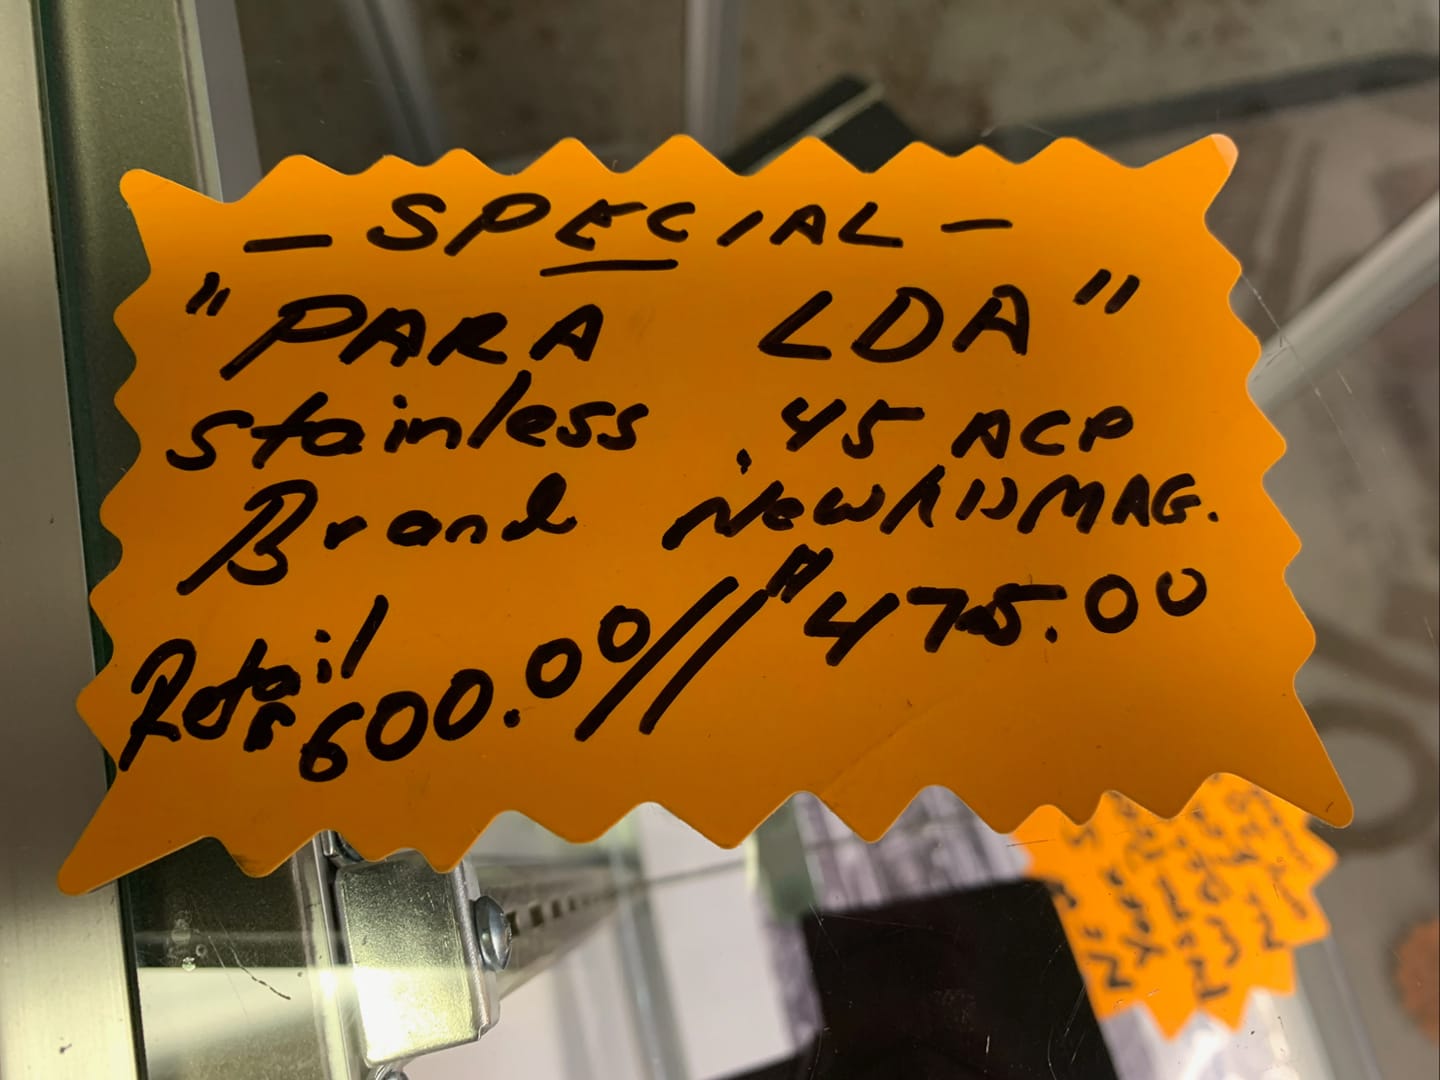 — SPECIAL —
"PARA LDA"
Stainless .45 ACP
Brand New
MAG.
Retail
600.00// $475.00